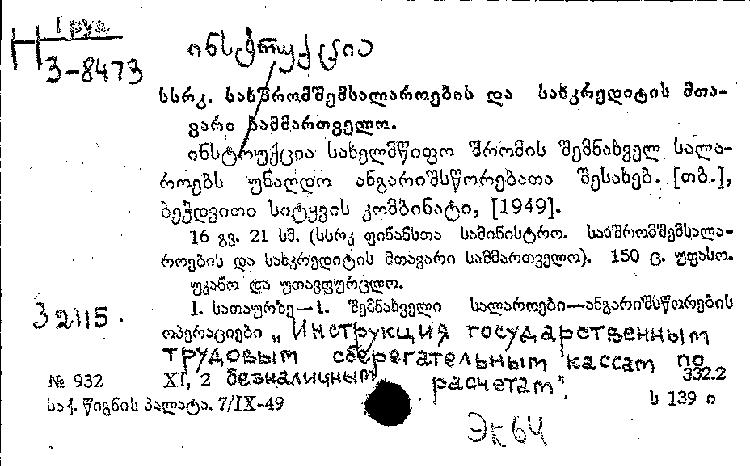 1 груз
H
3-8473
ინსტრუქცია
სსრკ. სახშრომშემსალაროების და სახკრედიტის მთა-
ვარი სამმართველო.
ინსტრუქცია სახელმწიფო შრომის შემნახველ სალა-
როებს უნაღდო ანგარიშსწორებათა შესახებ. [თბ.],
ბეჭდვითი სიტყვის კომბინატი, [1949].
16 გვ. 21 სმ. (სსრკ ფინანსთა სამინისტრო. სახშრომშემსალა-
როების და სახკრედიტის მთავარი სამმართველო). 150 ც. უფასო.
უკანო და უთავფურცლო.
1. სათაურზე—1. შემნახველი სალაროები—ანგარიშსწორების
32115.
ოპერაციები „Инструкция государственным
трудовым сберегательным кассам по
№ 932 XI, 2 безналичным расчетам". 332.2
საქ. წიგნის პალატა. 7/IX-49 ს 139 ი
Эк64